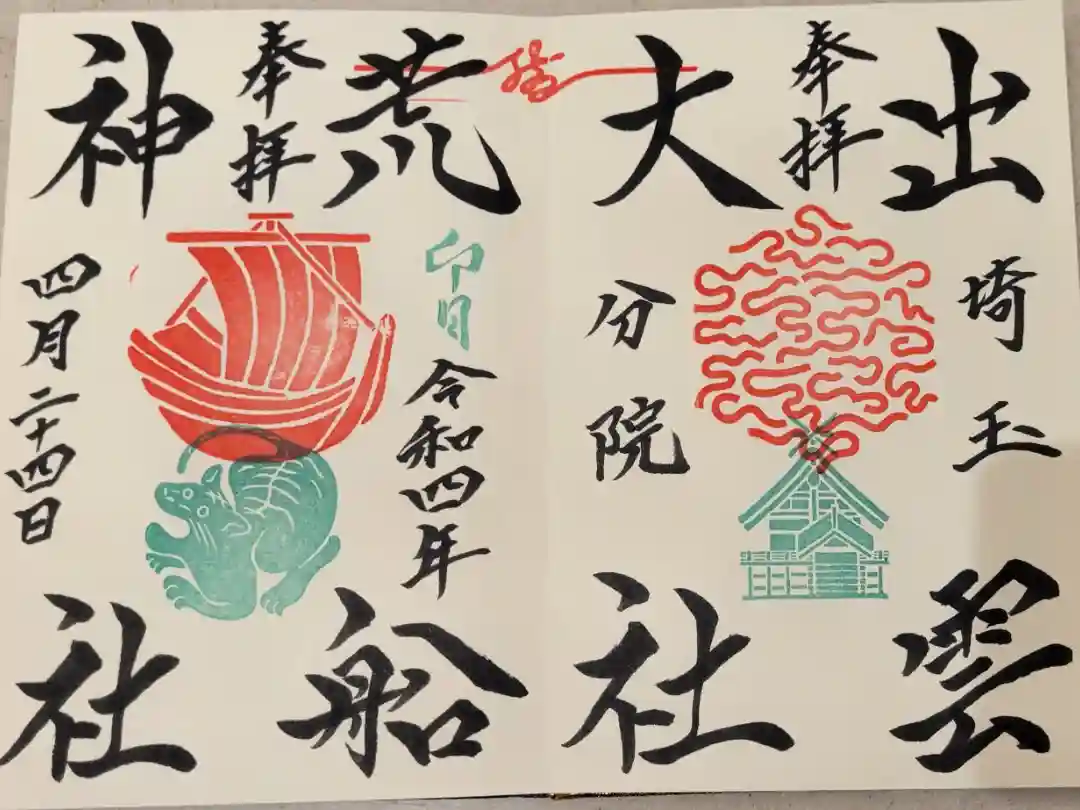 出雲
埼玉
奉拝
大社
分院
荒船
卯月
令和四年
奉拝
神社
四月二十四日